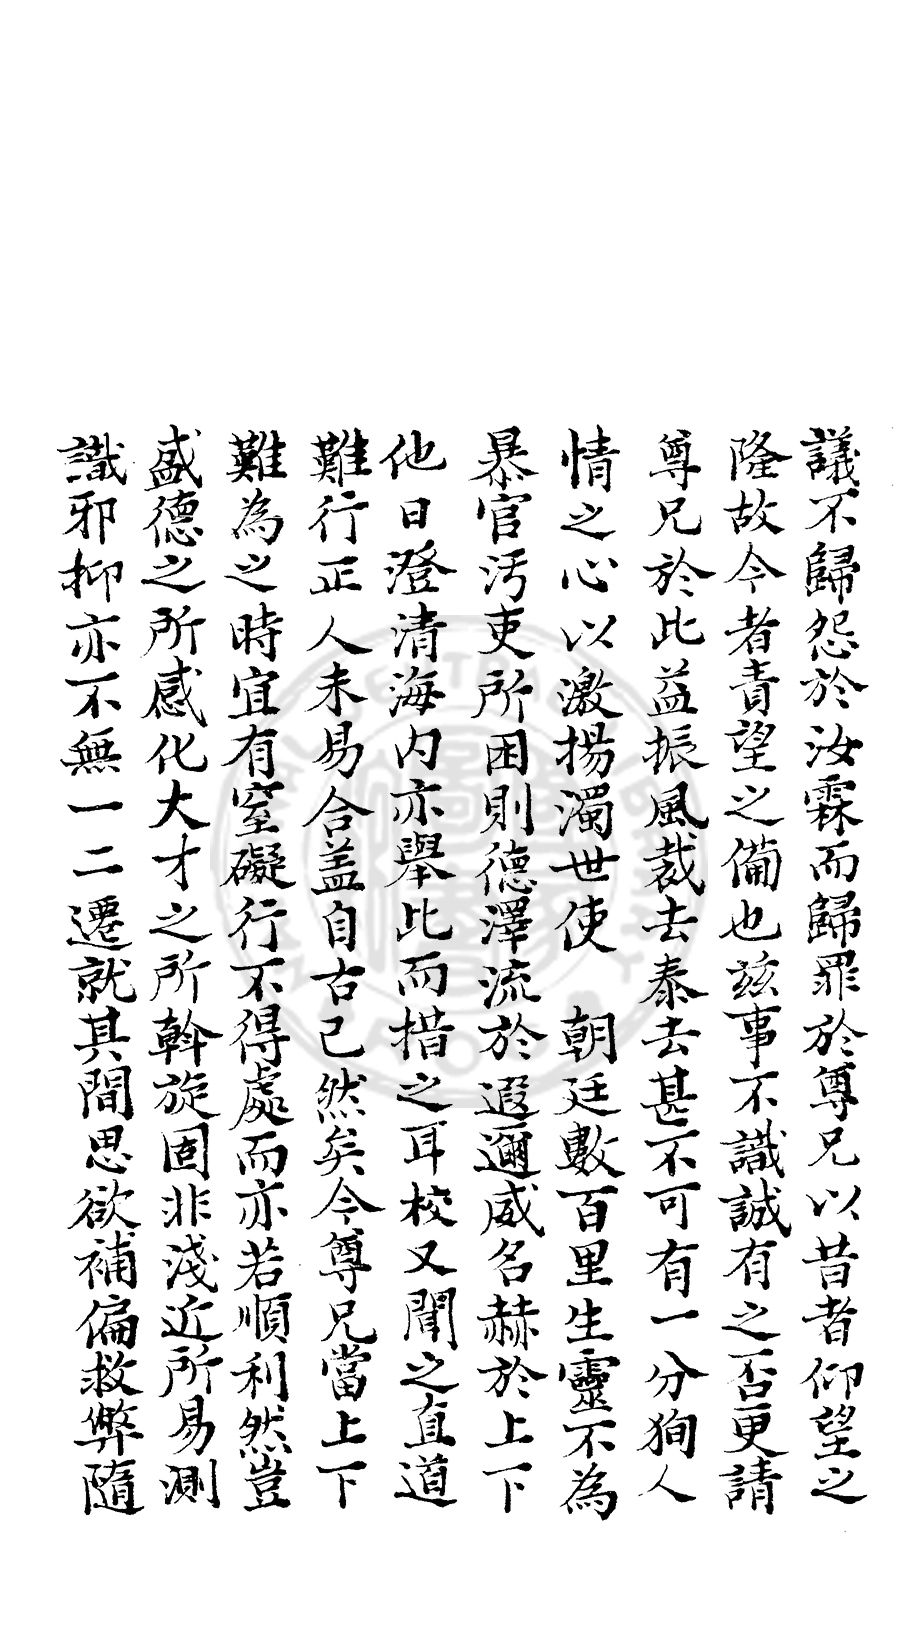 議不歸怨於汝霖而歸罪於尊兄以昔者仰望之
隆故今者責望之備也茲事不識誠有之否更請
尊兄於此益振風裁去泰去甚不可有一分狥人
情之心以激揚濁世使　朝廷數百里生靈不為
暴官汚吏所困則德澤流於遐邇威名赫於上下
他日澄清海內亦舉此而措之耳校又聞之直道
難行正人未易合盖自古已然矣今尊兄當上下
難為之時宜有窒礙行不得處而亦若順利然豈
盛德之所感化大才之所斡旋固非淺近所易測
識邪抑亦不無一二遷就其間思欲補偏救弊隨